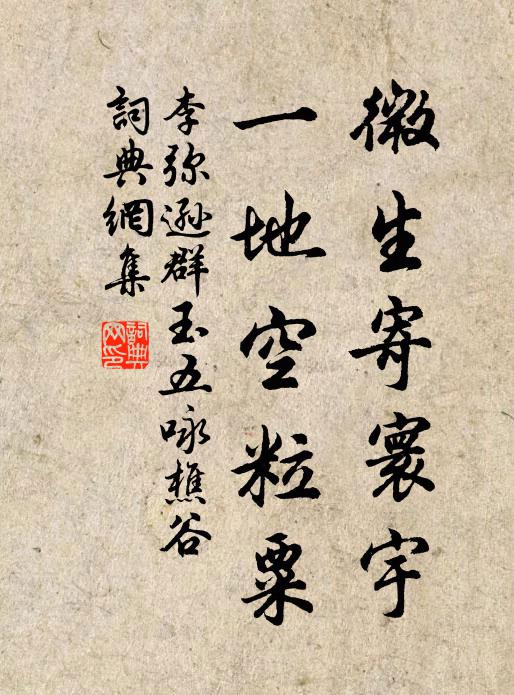 微生寄寰宇
一地空粒粟
李弥逊群玉五咏樵谷
詞典網集
詞典网印